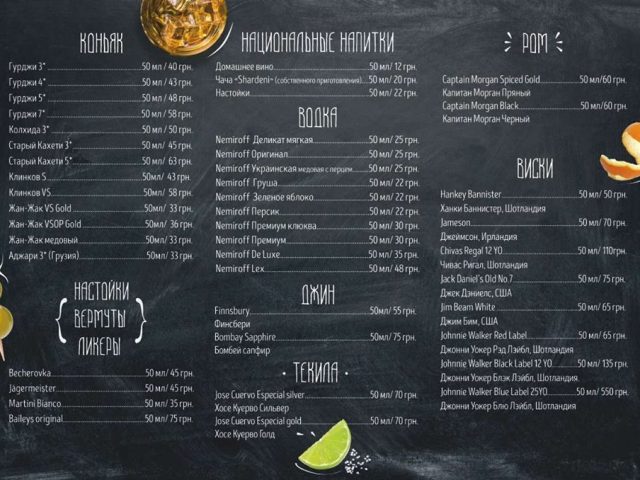 КОНЬЯК
Гурджи 3* 50 мл / 40 грн.
Гурджи 4* 50 мл / 43 грн.
Гурджи 5* 50 мл / 48 грн.
Гурджи 7* 50 мл / 58 грн.
Колхида 3* 50 мл / 50 грн.
Старый Кахети 3* 50 мл/ 45 грн.
Старый Кахети 5* 50 мл/ 63 грн.
Клинков S 50мл/ 43 грн.
Клинков VS 50мл/ 58 грн.
Жан-Жак VS Gold 50мл/ 33 грн.
Жан-Жак VSOP Gold 50мл/ 36 грн.
Жан-Жак медовый 50мл/ 33 грн.
Аджари 3* (Грузия) 50мл/ 33 грн.
НАСТОЙКИ
ВЕРМУТЫ
ЛИКЕРЫ
Becherovka 50 мл/ 45 грн.
Jagermeister 50 мл/ 45 грн.
Martini Bianco 50 мл/ 35 грн.
Baileys original 50 мл/ 75 грн.
НАЦИОНАЛЬНЫЕ НАПИТКИ
Домашнее вино 50 мл/ 12 грн.
Чача «Shardeni» (собственного приготовления) 50 мл/ 20 грн.
Настойки 50 мл/ 22 грн.
ВОДКА
Nemiroff Деликат мягкая 50 мл/ 25 грн.
Nemiroff Оригинал 50 мл/ 25 грн.
Nemiroff Украинская медовая с перцем 50 мл/ 25 грн.
Nemiroff Груша 50 мл/ 22 грн.
Nemiroff Зеленое яблоко 50 мл/ 22 грн.
Nemiroff Персик 50 мл/ 22 грн.
Nemiroff Премиум клюква 50 мл/ 30 грн.
Nemiroff Премиум 50 мл/ 30 грн.
Nemiroff De Luxe 50 мл/ 35 грн.
Nemiroff Lex 50 мл/ 48 грн.
ДЖИН
Finnsbury 50мл/ 55 грн.
Финсбери
Bombay Sapphire 50мл/ 75 грн.
Бомбей сапфир
ТЕКИЛА
Jose Cuervo Especial silver 50 мл/ 70 грн.
Хосе Куерво Сильвер
Jose Cuervo Especial gold 50 мл/ 70 грн.
Хосе Куерво Голд
РОМ
Captain Morgan Spiced Gold 50 мл/60 грн.
Капитан Морган Пряный
Captain Morgan Black 50 мл/60 грн.
Капитан Морган Черный
ВИСКИ
Hankey Bannister 50 мл/ 50 грн.
Ханки Баннистер, Шотландия
Jameson 50 мл/ 70 грн.
Джеймсон, Ирландия
Chivas Regal 12 YO 50 мл/ 110грн.
Чивас Ригал, Шотландия
Jack Daniel's Old No.7 50 мл/ 75 грн.
Джек Дэниелс, США
Jim Beam White 50 мл/ 65 грн.
Джим Бим, США
Johnnie Walker Red Label 50 мл/ 65 грн.
Джонни Уокер Рэд Лэйбл, Шотландия
Johnnie Walker Black Label 12 YO 50 мл/ 135 грн.
Джонни Уокер Блэк Лэйбл, Шотландия.
Johnnie Walker Blue Label 25YO 50 мл/ 550 грн.
Джонни Уокер Блю Лэйбл, Шотландия